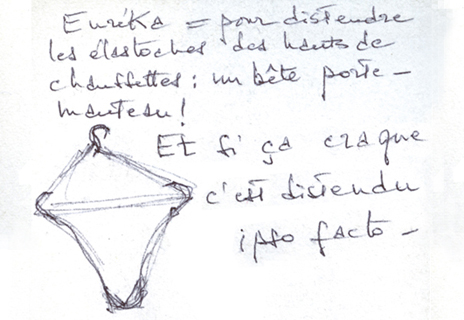 Euréka = pour distendre
les élastoches des hauts de
chaussettes : un bête porte-
manteau !
Et si ça craque
c'est distendu
ipso facto -